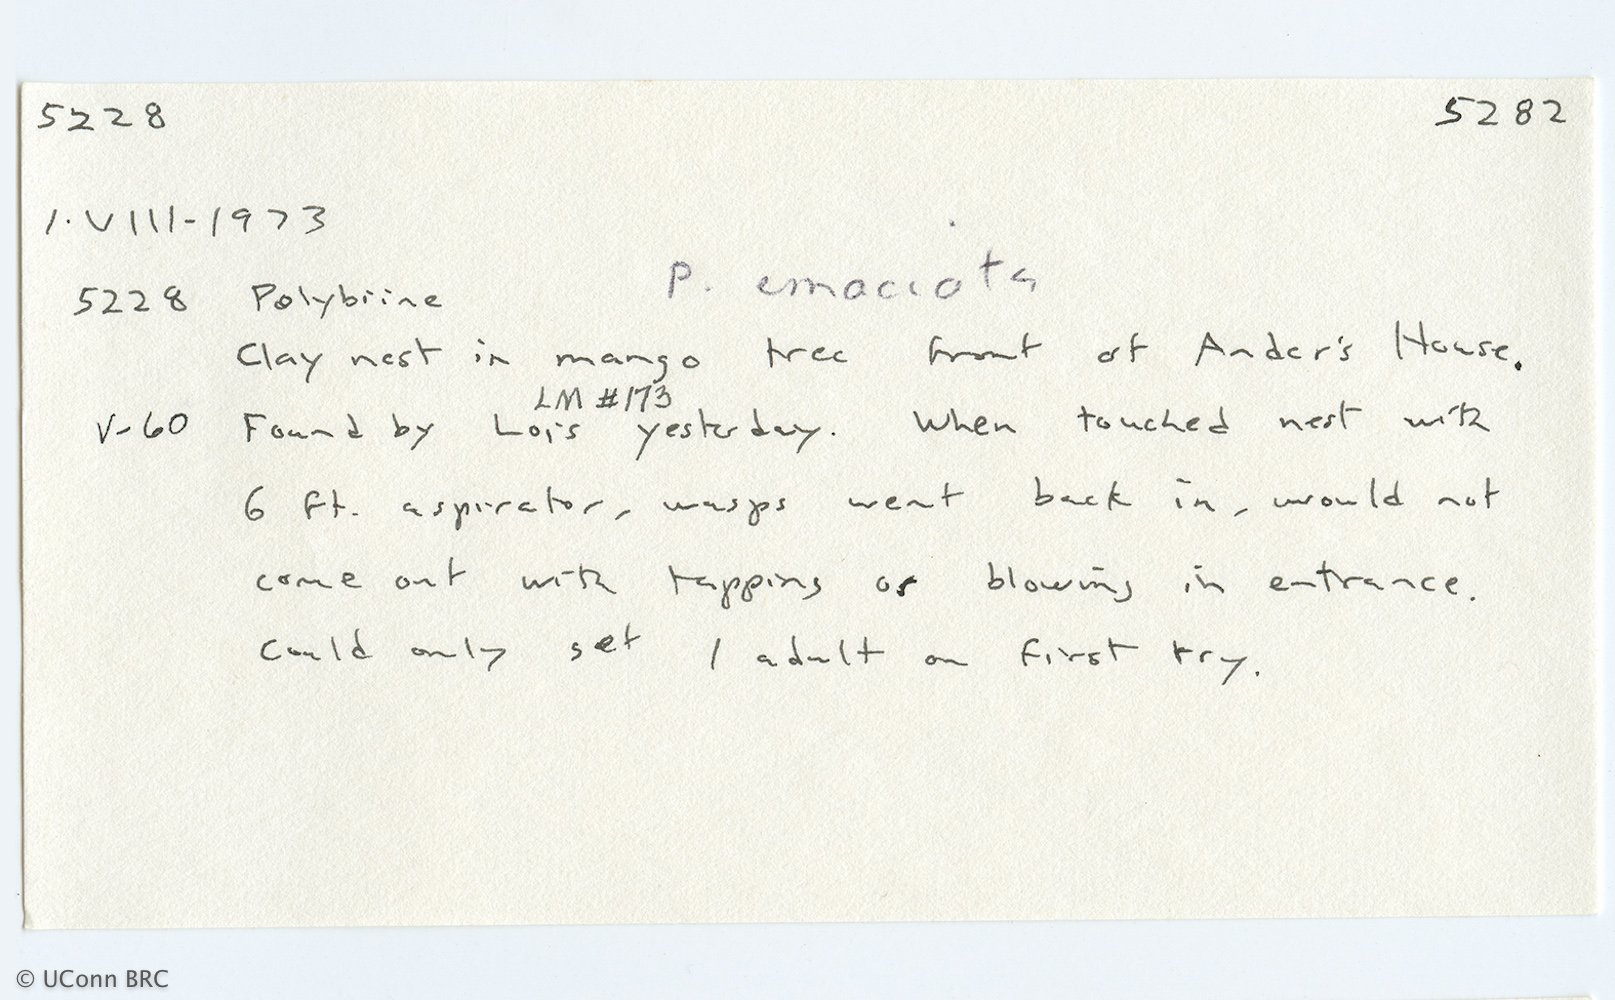 5228 5282
1-VIII-1973
P. emaciata
5228 Polybiine
Clay nest in mango tree front of Ander's House.
LM #173
V-60 Found by Lois yesterday. When touched nest with
6 ft. aspirator, wasps went back in, would not
come out with tapping or blowing in entrance.
Could only get 1 adult on first try.
© UConn BRC